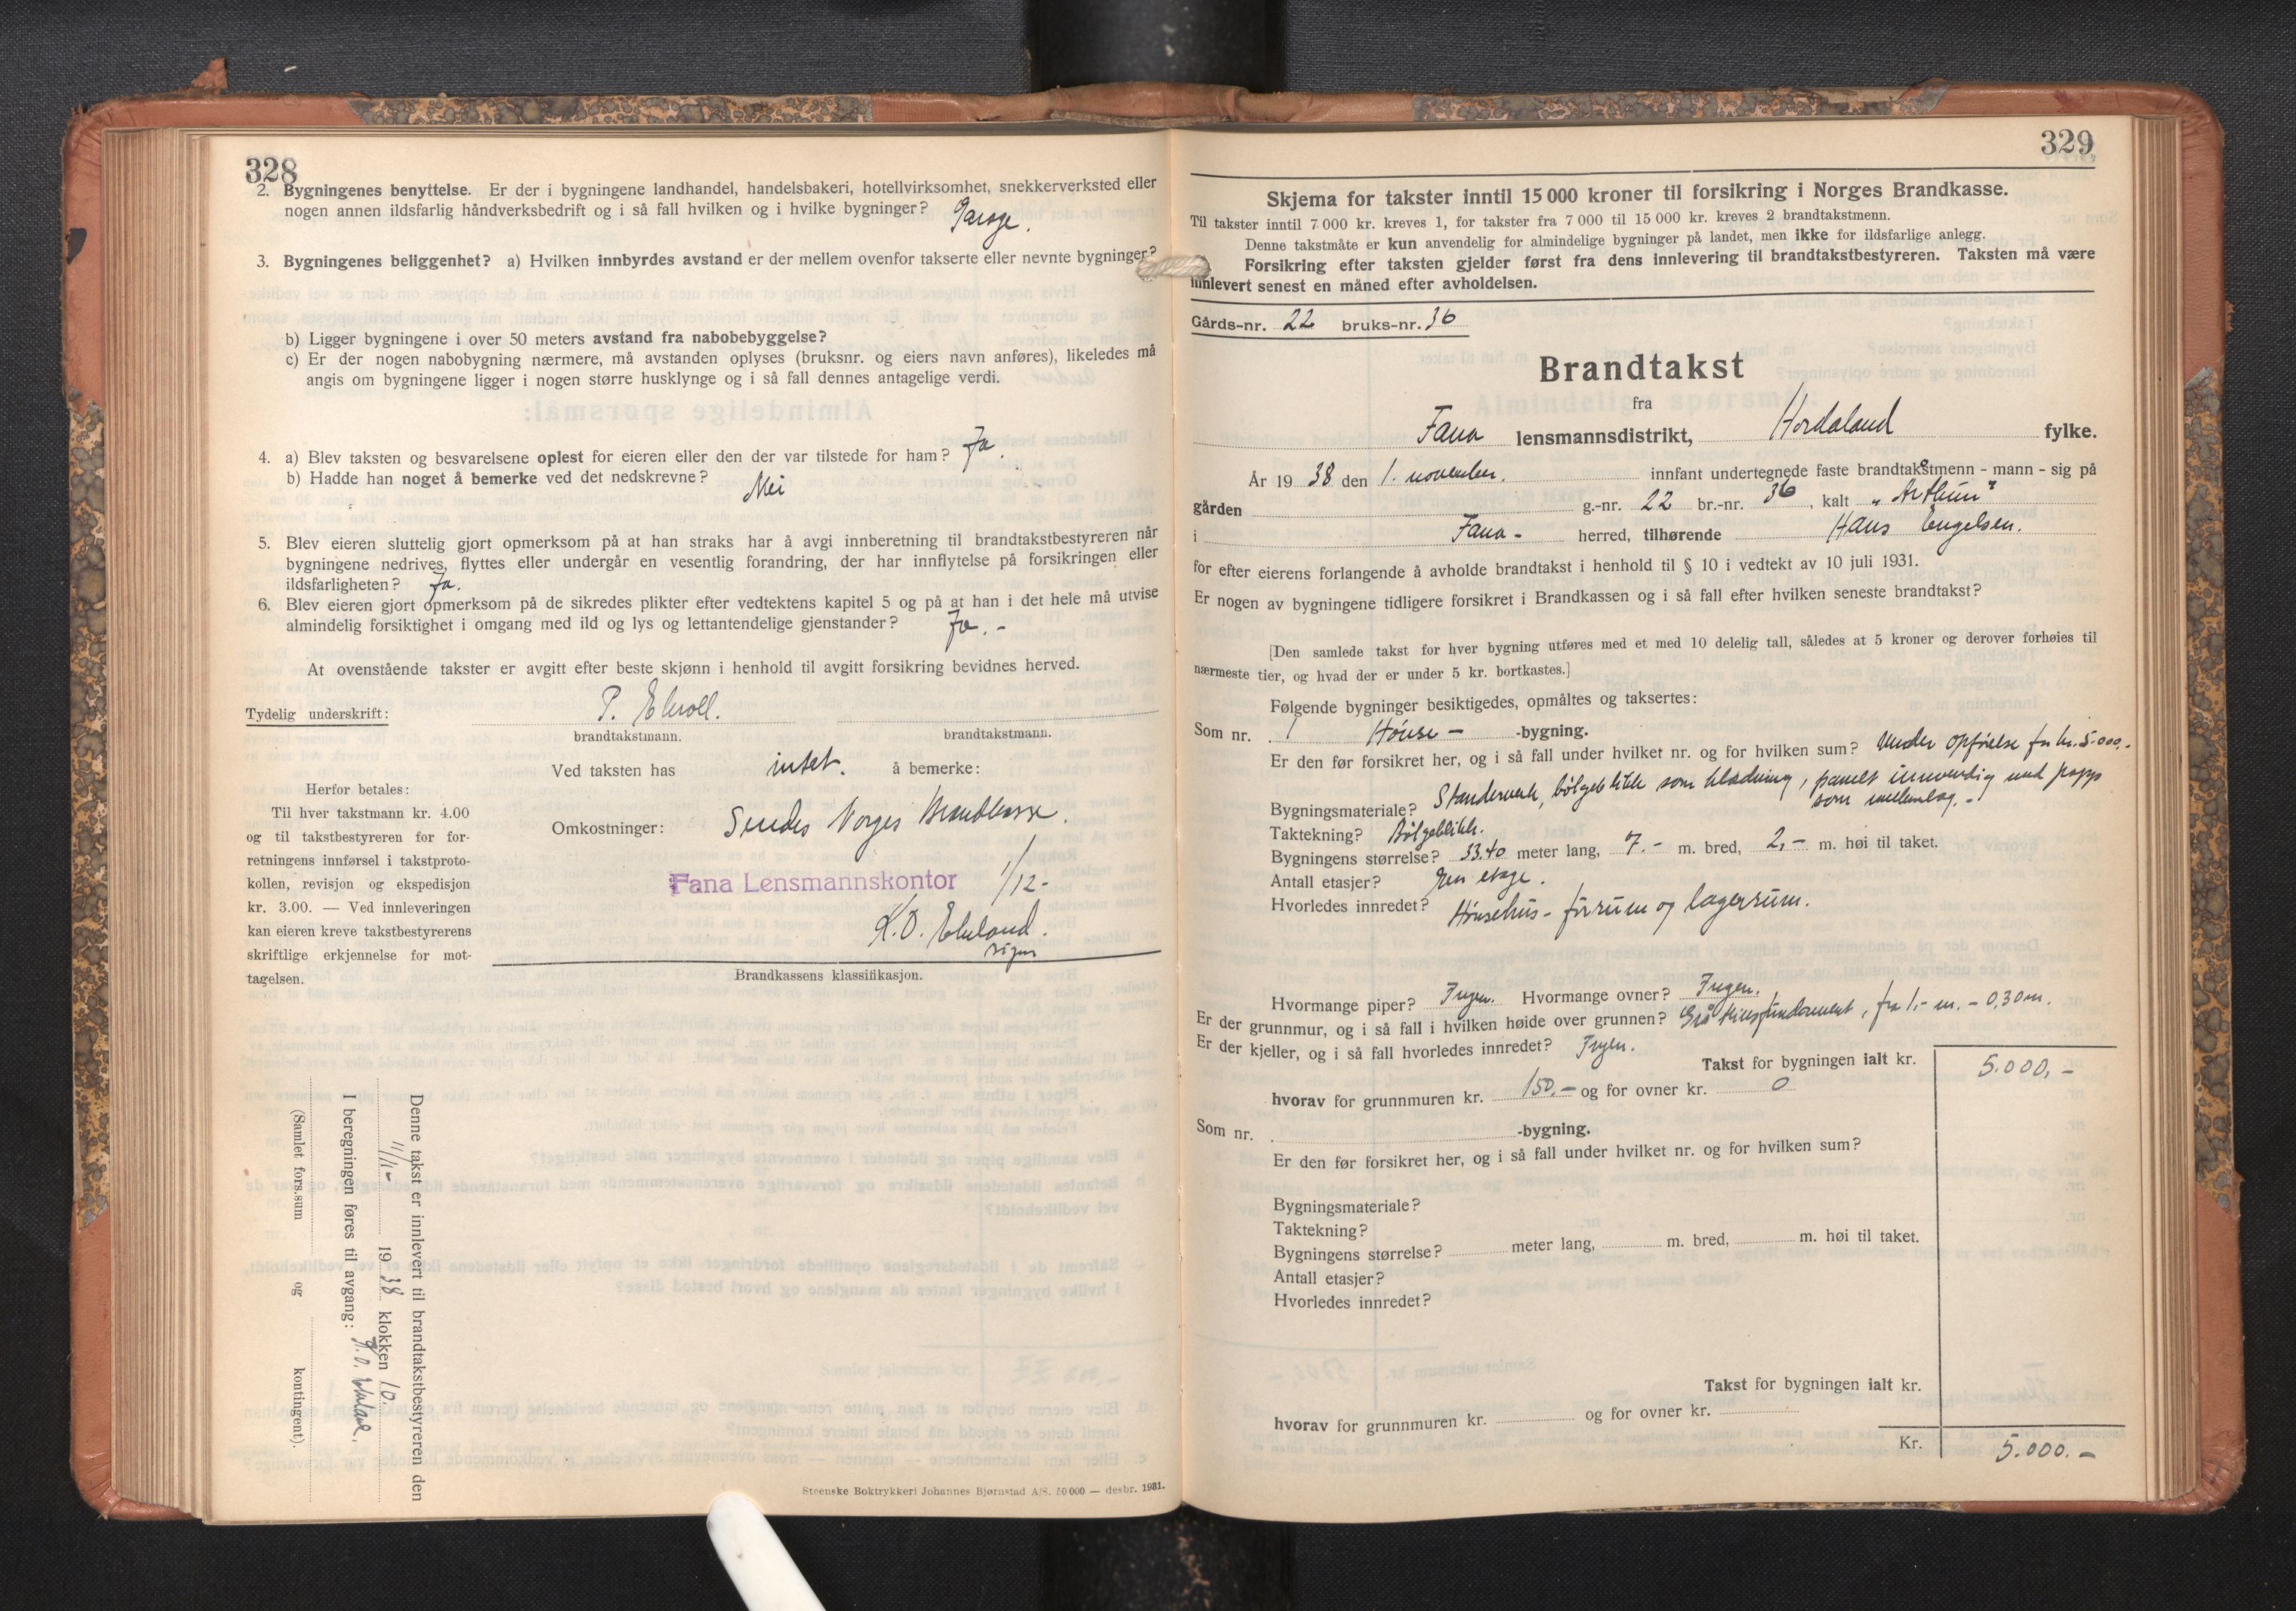 328
2. Bygningenes benyttelse. Er der i bygningene landhandel, handelsbakeri, hotellvirksomhet, snekkerverksted eller
nogen annen ildsfarlig håndverksbedrift og i så fall hvilken og i hvilke bygninger? Garage.
3. Bygningenes beliggenhet? a) Hvilken innbyrdes avstand er der mellem ovenfor takserte eller nevnte bygninger?
b) Ligger bygningene i over 50 meters avstand fra nabobebyggelse?
c) Er der nogen nabobygning nærmere, må avstanden oplyses (bruksnr. og eiers navn anføres), likeledes må
angis om bygningene ligger i nogen større husklynge og i så fall dennes antagelige verdi.
4. a) Blev taksten og besvarelsene oplest for eieren eller den der var tilstede for ham? Ja.
b) Hadde han noget å bemerke ved det nedskrevne? Nei
5. Blev eieren sluttelig gjort opmerksom på at han straks har å avgi innberetning til brandtakstbestyreren når
bygningene nedrives, flyttes eller undergår en vesentlig forandring, der har innflytelse på forsikringen eller
ildsfarligheten? Ja.
6. Blev eieren gjort opmerksom på de sikredes plikter efter vedtektens kapitel 5 og på at han i det hele må utvise
almindelig forsiktighet i omgang med ild og lys og lettantendelige gjenstander? Ja.-
At ovenstående takster er avgitt efter beste skjønn i henhold til avgitt forsikring bevidnes herved.
Tydelig underskrift: P. Ekroll.
brandtakstmann. brandtakstmann.
Ved taksten has intet. å bemerke:
Herfor betales:
Til hver takstmann kr. 4.00
og til takstbestyreren for for-
retningens innførsel i takstproto-
kollen, revisjon og ekspedisjon
kr. 3.00. — Ved innleveringen
kan eieren kreve takstbestyrerens
skriftlige erkjennelse for mot-
tagelsen.
Omkostninger: Sendes Norges Brandkasse.
Fana Lensmannskontor 1/12-
K.O. Ekeland.
sign
Brandkassens klassifikasjon.
Denne takst er innlevert til brandtakstbestyreren den
11/11- 1938 klokken 10.
I beregningen føres til avgang: K.O. Ekeland.
(Samlet fors.sum og kontingent).
Steenske Boktrykkeri Johannes Bjørnstad A/S. 50 000 — desbr. 1931.
329
Skjema for takster inntil 15 000 kroner til forsikring i Norges Brandkasse.
Til takster inntil 7 000 kr. kreves 1, for takster fra 7 000 til 15 000 kr. kreves 2 brandtakstmenn.
Denne takstmåte er kun anvendelig for almindelige bygninger på landet, men ikke for ildsfarlige anlegg.
Forsikring efter taksten gjelder først fra dens innlevering til brandtakstbestyreren. Taksten må være
innlevert senest en måned efter avholdelsen.
Gårds-nr. 22 bruks-nr. 36
Brandtakst
fra
Fana lensmannsdistrikt, Hordaland fylke.
År 1938 den 1. november. innfant undertegnede faste brandtakstmenn - mann - sig på
gården g.-nr. 22 br.-nr. 36, kalt
i Fana- herred, tilhørende Hans Engelsen.
for efter eierens forlangende å avholde brandtakst i henhold til § 10 i vedtekt av 10 juli 1931.
Er nogen av bygningene tidligere forsikret i Brandkassen og i så fall efter hvilken seneste brandtakst?
[Den samlede takst for hver bygning utføres med et med 10 delelig tall, således at 5 kroner og derover forhøies til
nærmeste tier, og hvad der er under 5 kr. bortkastes.]
Følgende bygninger besiktigedes, opmåltes og taksertes:
Som nr. 1 Hønse- -bygning.
Er den før forsikret her, og i så fall under hvilket nr. og for hvilken sum? Under opførelse for kr. 5.000.-
Bygningsmateriale? Standerverk, bølgeblikk som klædning, panelt innvendig med papp
som mellemlag.-
Taktekning? Bølgeblikk.
Bygningens størrelse? 33.40 meter lang, 7.- m. bred, 2,- m. høi til taket.
Antall etasjer? En etage.
Hvorledes innredet? Hønsehus- fórrum og lagerrum.
Hvormange piper? Ingen. Hvormange ovner? Ingen.
Er der grunnmur, og i så fall i hvilken høide over grunnen? Gråsteinsfundament, fra 1.- m. - 0,30 m.
Er der kjeller, og i så fall hvorledes innredet? Ingen.
Takst for bygningen ialt kr. 5.000,-
hvorav for grunnmuren kr. 150.- og for ovner kr. 0
Som nr. -bygning.
Er den før forsikret her, og i så fall under hvilket nr. og for hvilken sum?
Bygningsmateriale?
Taktekning?
Bygningens størrelse? meter lang, m. bred, m. høi til taket.
Antall etasjer?
Hvorledes innredet?
Takst for bygningen ialt kr.
hvorav for grunnmuren kr. og for ovner kr.
Kr. 5.000.-